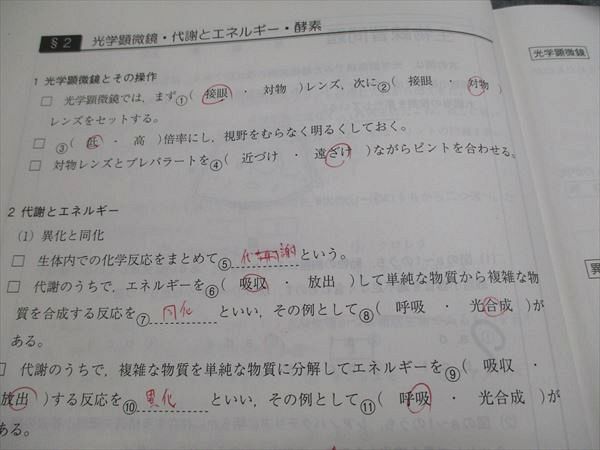 §2 光学顕微鏡・代謝とエネルギー・酵素
光学顕微鏡
1 光学顕微鏡とその操作
□ 光学顕微鏡では，まず①( 接眼 ・ 対物 )レンズ，次に②( 接眼 ・ 対物 )
レンズをセットする。
□ ③( 低 ・ 高 )倍率にし，視野をむらなく明るくしておく。
□ 対物レンズとプレパラートを④( 近づけ ・ 遠ざけ )ながらピントを合わせる。
2 代謝とエネルギー
(1) 異化と同化
□ 生体内での化学反応をまとめて⑤ 代謝 という。
□ 代謝のうちで，エネルギーを⑥( 吸収 ・ 放出 )して単純な物質から複雑な物
質を合成する反応を⑦ 同化 といい，その例として⑧( 呼吸 ・ 光合成 )が
ある。
□ 代謝のうちで，複雑な物質を単純な物質に分解してエネルギーを⑨( 吸収 ・
放出 )する反応を⑩ 異化 といい，その例として⑪( 呼吸 ・ 光合成 )が
ある。
異